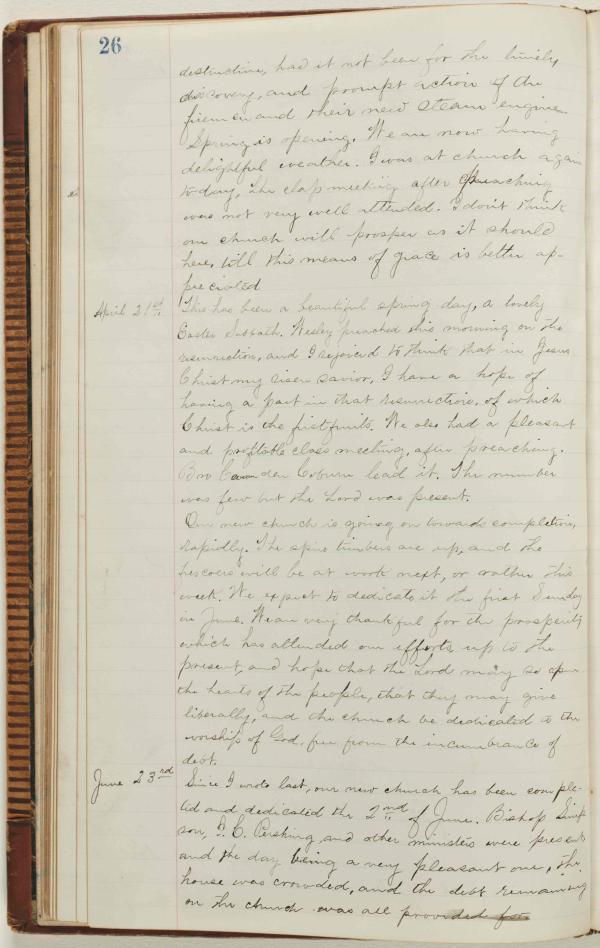 26
destruction, had it not been for the timely
discovery, and prompt action of the
firemen and their new steam engine.
Spring is opening. We are now having
delightful weather. I was at church again
to-day, the class meeting after preaching
were not very well attended. I don't think
our church will prosper as it should
here, till this means of grace is better ap-
preciated
April 21st. This has been a beautiful spring day, a lovely
Easter Sabbath. Wesley preached this morning on the
resurrection, and I rejoiced to think that in Jesus
Christ my risen savior, I have a hope of
having a part in that resurrection, of which
Christ is the firstfruits. We also had a pleasant
and profitable class meeting, after preaching.
Bro Camden Coburn lead it. The number
was few but the Lord was present.
Our new church is going on towards completion,
rapidly. The spire timbers are up, and the
frescoers will be at work next, or rather this
week. We expect to dedicate it the first Sunday
in June. We are very thankful for the prosperity
which has attended our efforts up to the
present, and hope that the Lord may so open
the hearts of the people, that they may give
liberally, and the church be dedicated to the
worship of God, free from the incumbrance of
debt.
June 23rd Since I wrote last, our new church has been comple-
ted and dedicated the 2nd of June. Bishop Simp
son, I. C. Pershing and other ministers were present
and the day being a very pleasant one, the
house was crowded, and the debt remaining
on the church was all provided for